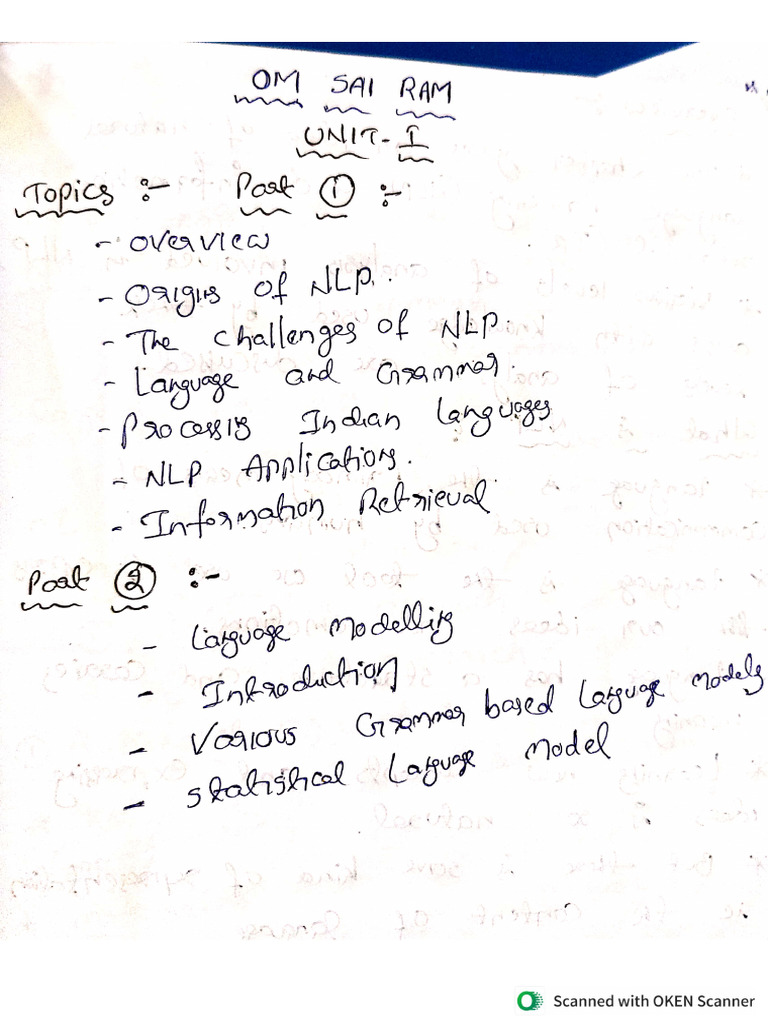 OM SAI RAM
UNIT-I
Topics :- Part ① :-
- overview
- Origins of NLP.
- The challenges of NLP.
- Language and Grammar.
- Processing Indian Languages
- NLP Applications.
- Information Retrieval
Part ② :-
- Language Modelling
- Introduction
- Various Grammar based Language Models
- Statistical Language Model
Scanned with OKEN Scanner